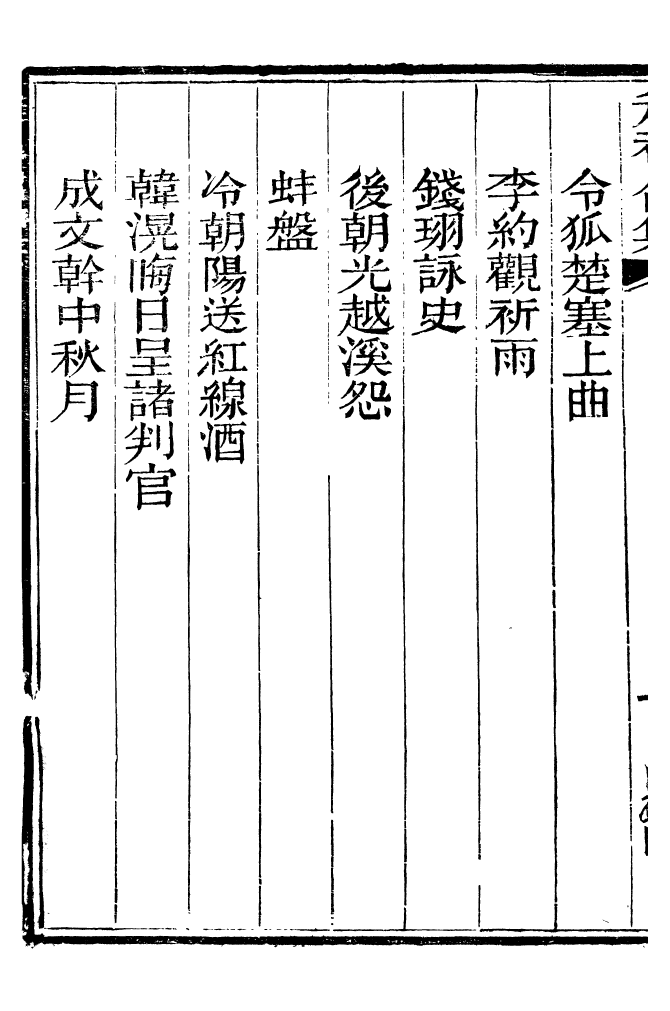 令狐楚塞上曲
李約觀祈雨
錢珝詠史
後朝光越溪怨
蚌盤
冷朝陽送紅線酒
韓滉晦日呈諸判官
成文幹中秋月